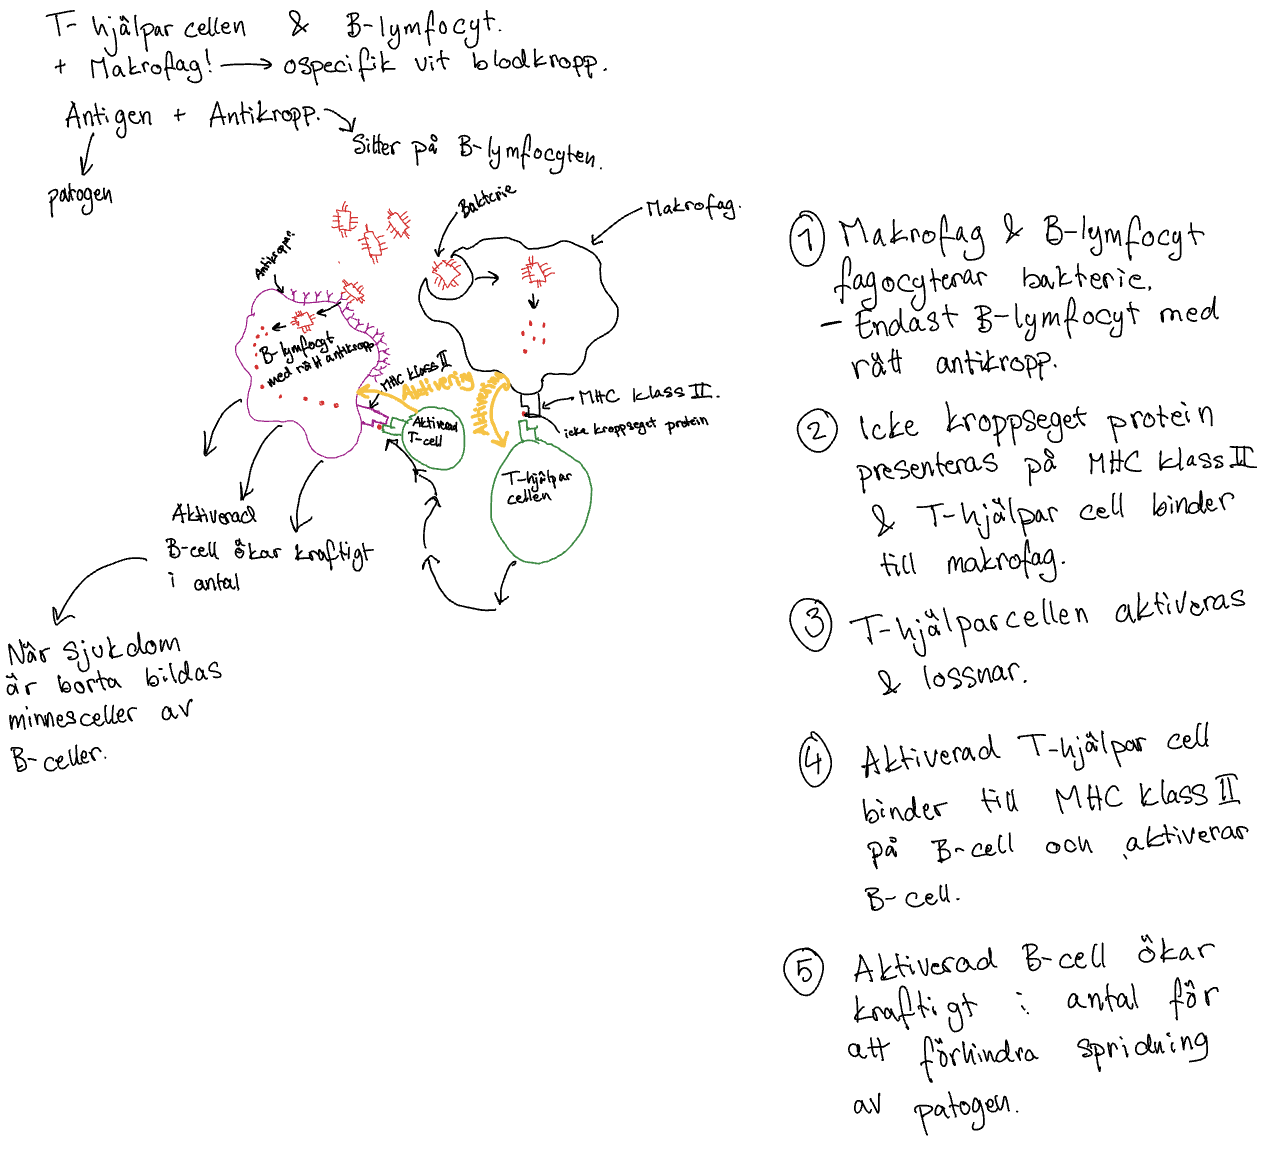 T-hjälpar cellen & B-lymfocyt.
+ Makrofag! → ospecifik vit blodkropp.
Antigen + Antikropp.
Sitter på B-lymfocyten.
patogen
Bakterie
Makrofag.
Antikroppar
B-lymfocyt
med rätt antikropp
MHC klass II
Aktivering
Aktiverad
T-cell
Aktivering
MHC klass II.
icke kroppseget protein
T-hjälpar
cellen
Aktiverad
B-cell ökar kraftigt
i antal
När sjukdom
är borta bildas
minnesceller av
B-celler.
① Makrofag & B-lymfocyt
fagocyterar bakterie.
- Endast B-lymfocyt med
rätt antikropp.
② Icke kroppseget protein
presenteras på MHC klass II
& T-hjälpar cell binder
till makrofag.
③ T-hjälparcellen aktiveras
& lossnar.
④ Aktiverad T-hjälpar cell
binder till MHC klass II
på B-cell och aktiverar
B-cell.
⑤ Aktiverad B-cell ökar
kraftigt i antal för
att förhindra spridning
av patogen.